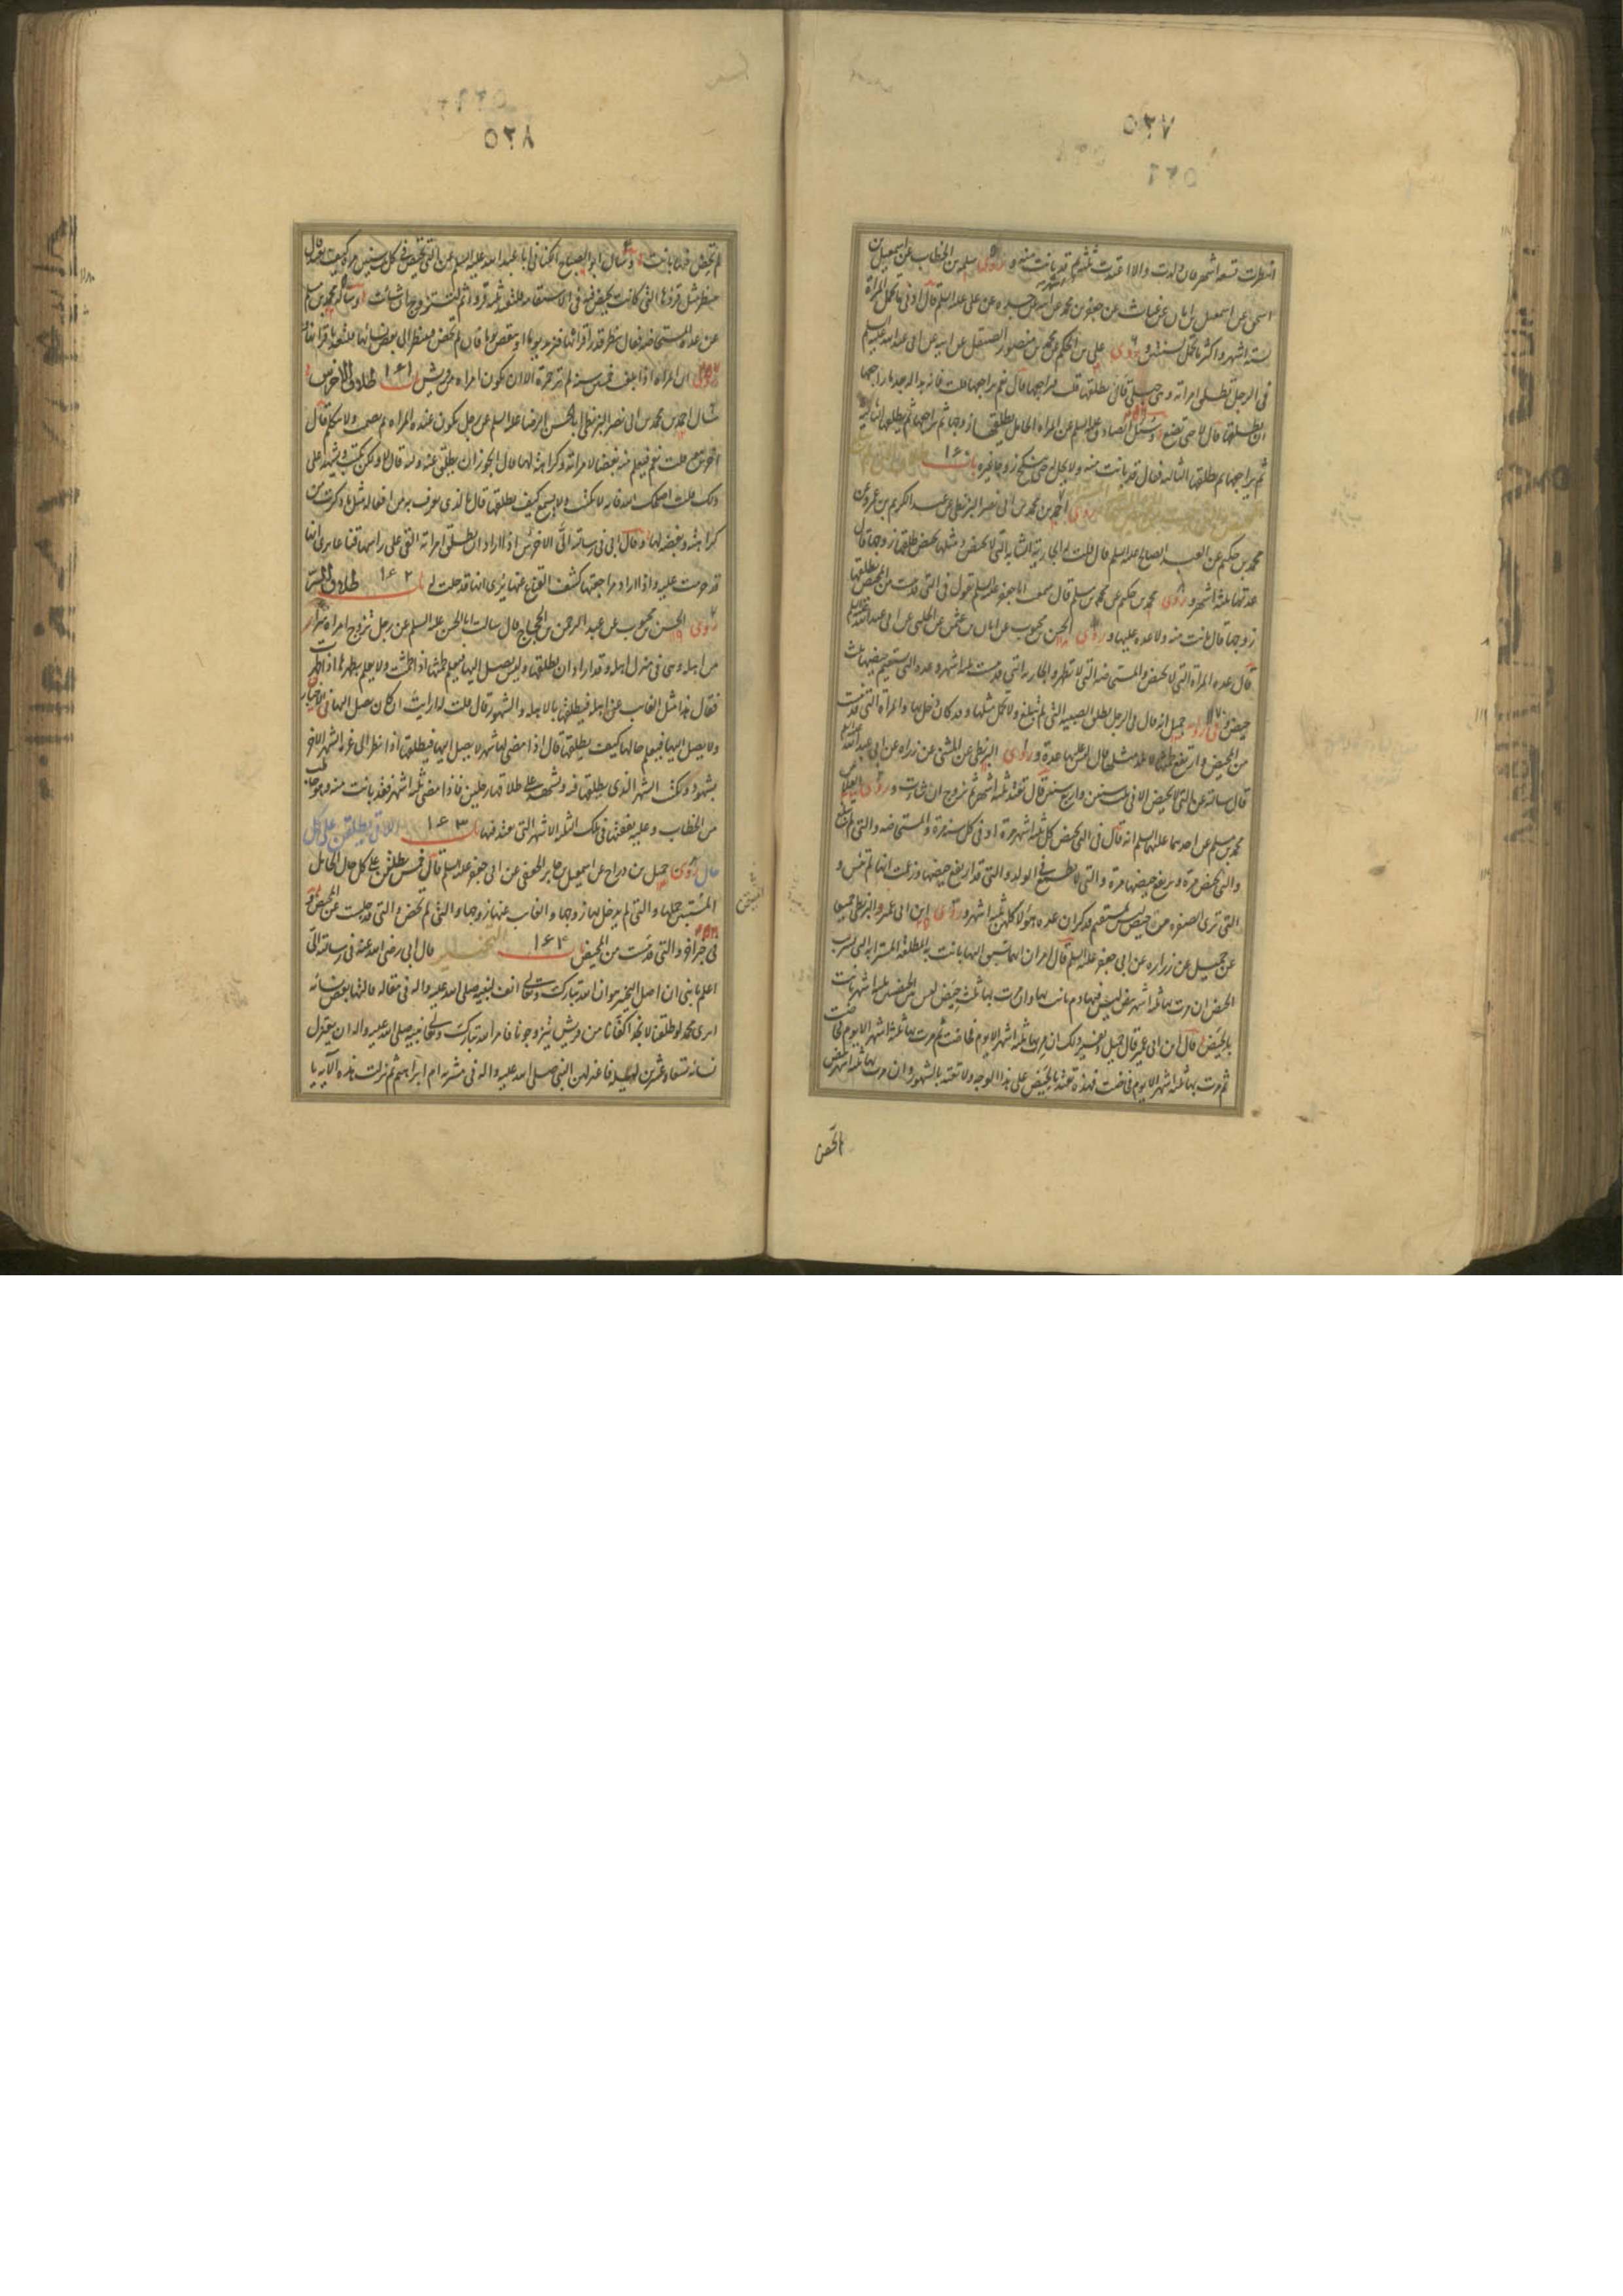 ٥٢٧
انتظرت تسعة اشهر فان ولدت والا اعتدت ثلثة اشهر ثم قد بانت منه وروى سلمة بن الخطاب عن اسمعيل بن
اسحق عن اسمعيل بن ابان عن غياث عن جعفر بن محمد عن ابيه عن علی علیه السلم قال ادنى ما تحمل المراة
لستة اشهر واكثر ما تحمل لسنة وروى علی بن الحکم عن محمد بن منصور الصيقل عن ابيه عن ابی عبد الله علیه السلم
فی الرجل يطلق امراته وهی حبلی قال يطلقها قلت فيراجعها قال نعم يراجعها قلت فانه بدا له بعد ما راجعها
ان يطلقها قال لا حتى تضع وسئل الصادق علیه السلم عن المراة الحامل يطلقها زوجها ثم يراجعها ثم يطلقها الثانیة
ثم يراجعها ثم يطلقها الثالثة فقال قد بانت منه ولا تحل له حتى تنکح زوجا غيره باب ١٦٠
روى احمد بن محمد بن ابی نصر البزنطی عن عبد الکریم بن عمرو عن
محمد بن حکیم عن العبد الصالح علیه السلم قال قلت له الجارية الشابة التی لا تحیض ومثلها تحیض طلقها زوجها قال
عدتها ثلثة اشهر وروى محمد بن حکیم عن محمد بن مسلم قال سمعت ابا جعفر علیه السلم يقول فی التی قد يئست من المحیض يطلقها
زوجها قال بانت منه ولا عدة عليها وروى الحسن بن محبوب عن ابان بن عثمن عن الحلبی عن ابی عبد الله علیه السلم
قال عدة المراة التی لا تحیض والمستحاضة التی لا تطهر والجارية التی قد يئست ثلثة اشهر وعدة التی يستقیم حیضها ثلث
حیض وفی رواية جمیل انه قال فی الرجل يطلق الصبية التی لم تبلغ ولا تحمل مثلها وقد کان دخل بها والمراة التی قد يئست
من المحیض وارتفع طمثها ولا تلد مثلها قال لیس علیها عدة وروى البزنطی عن المثنى عن زرارة عن ابی عبد الله علیه السلم
قال سالته عن التی لا تحیض الا فی ثلث سنین او اربع سنین قال تعتد ثلثة اشهر ثم تزوج ان شاءت وروى العلا عن
محمد بن مسلم عن احدهما علیهما السلم انه قال فی التی تحیض کل ثلثة اشهر مرة او فی کل سنة مرة والمستحاضة والتی لم تبلغ
والتی تحیض مرة ويرتفع حیضها مرة والتی لا تطمع فی الولد والتی قد ارتفع حیضها وزعمت انها لم تیئس و
التی ترى الصفرة من حیض لیس بمستقیم فذکر ان عدة هؤلاء کلهن ثلثة اشهر وروى ابن ابی عمير والبزنطی جمیعا
عن جمیل عن زرارة عن ابی جعفر علیه السلم قال امران ايهما سبق الیها بانت به المطلقة المسترابة التی تستریب
الحیض ان مرت بها ثلثة اشهر بیض لیس فیها دم بانت بها وان مرت بها ثلث حیض لیس بین الحیضتین ثلثة اشهر بانت
بالحیض قال ابن ابی عمیر قال جمیل وتفسیر ذلک ان مرت بها ثلثة اشهر الا يوم فحاضت ثم مرت بها ثلثة اشهر الا يوم فحاضت
ثم مرت بها ثلثة اشهر الا يوم فحاضت فهذه تعتد بالحیض علی هذا الوجه ولا تعتد بالشهور وان مرت بها ثلثة اشهر بیض
٥٢٨
لم تحض فیها بانت وسال ابو الصباح الکنانی ابا عبد الله علیه السلم عن التی تحیض فی کل ثلث سنین مرة کیف تعتد قال
تنتظر مثل قروئها التی کانت تحیض فیه فی الاستقامة فلتعتد ثلثة قروء ثم لتتزوج ان شاءت وساله محمد بن مسلم
عن عدة المستحاضة فقال تنتظر قدر اقرائها فتزید يوما او تنقص يوما فان لم تحض فلتنظر الى بعض نسائها فلتعتد باقرائها
وروى ان المراة اذا بلغت خمسین سنة لم تر حمرة الا ان تکون امراة من قریش باب ١٦١ طلاق الاخرس
سال احمد بن محمد بن ابی نصر البزنطی ابا الحسن الرضا علیه السلم عن رجل يکون عنده المراة ثم يصمت ولا يتکلم قال
اخرس قلت نعم فیعلم منه بغضا لامراته وکراهته لها قال ايجوز ان يطلق عنه ولیه قال لا ولکن يکتب ويشهد علی
ذلک قلت اصلحک الله فانه لا يکتب ولا يسمع کیف يطلقها قال بالذی يعرف به من افعاله مثل ما ذکرت من
کراهته وبغضه لها وقال ابی فی رسالته الی الاخرس اذا اراد ان يطلق امراته القى علی راسها قناعا يرى انها
قد حرمت علیه واذا اراد مراجعتها کشف القناع عنها يرى انها قد حلت له باب ١٦٢ طلاق السر
روى الحسن بن محبوب عن عبد الرحمن بن الحجاج قال سالت ابا الحسن علیه السلم عن رجل تزوج امراة سرا
من اهله وهی فی منزل اهله وقد اراد ان يطلقها ولیس يصل الیها فیعلم طمثها اذا طمثت ولا يعلم بطهرها اذا طهرت
فقال هذا مثل الغائب عن اهله فیطلقها بالاهلة والشهور قال قلت ارايت ان کان يصل الیها فی الاحیان
ولا يصل الیها فیعلم حالها کیف يطلقها قال اذا مضى لها شهر لا يصل الیها فیطلقها اذا نظر الى غرة الشهر الاخر
بشهود ويکتب الشهر الذی يطلقها فیه ويشهد علی طلاقها رجلین فاذا مضى ثلثة اشهر فقد بانت منه وهو خاطب
من الخطاب وعلیه نفقتها فی تلک الثلثة الاشهر التی تعتد فیها باب ١٦٣ اللاتی يطلقن علی کل
حال روى جمیل بن دراج عن اسمعیل بن جابر الجعفی عن ابی جعفر علیه السلم قال خمس يطلقن علی کل حال الحامل
المتبین حملها والتی لم يدخل بها زوجها والغائب عنها زوجها والتی لم تحض والتی قد جلست عن المحیض و
فی خبر اخر والتی قد يئست من المحیض باب ١٦٤ التخییر قال ابی رضی الله عنه فی رسالته الی
اعلم يا بنی ان اصل التخییر هو ان الله تبارک وتعالى انف لنبیه صلی الله علیه واله فی مقالة قالتها بعض نسائه
ايرى محمد لو طلقنا لا نجد اکفائنا من قریش يتزوجونا فامر الله تبارک وتعالى نبیه صلی الله علیه واله ان يعتزل
نسائه تسعا وعشرین لیلة فاعتزلهن النبی صلی الله علیه واله فی مشربة ام ابراهیم ثم نزلت هذه الاية يا